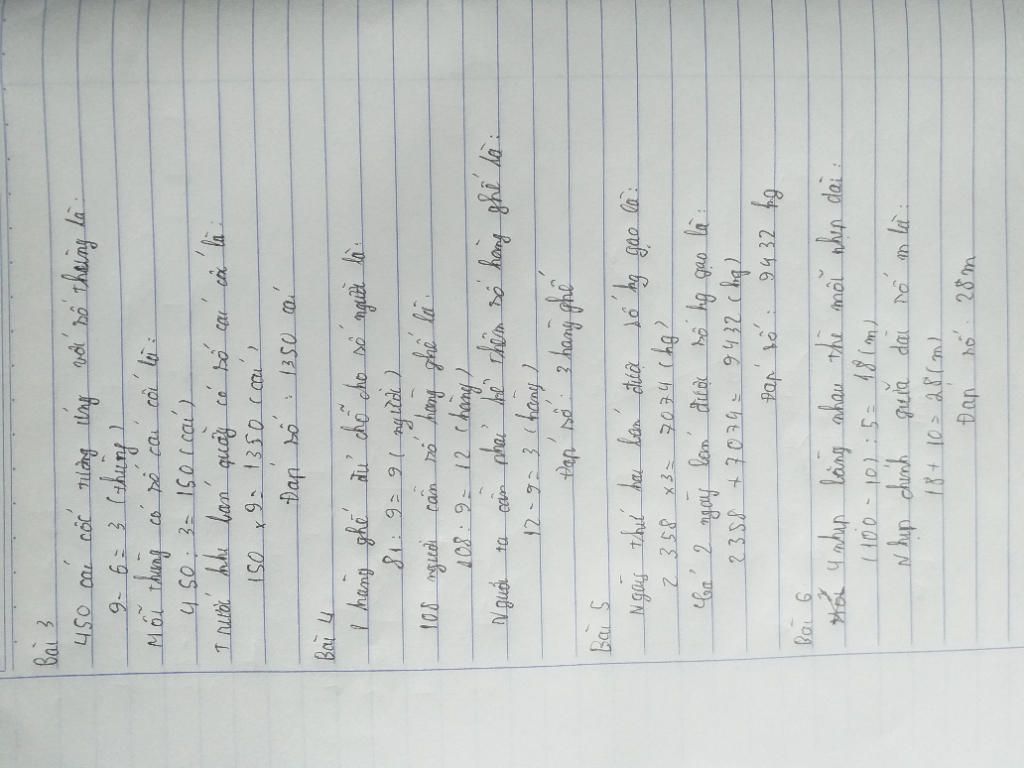 Bài 3
450 cái cốc tương ứng với số thùng là:
9 - 6 = 3 (thùng)
Mỗi thùng có số cái cốc là:
450 : 3 = 150 (cái)
Trước khi bán quầy có số cái cốc là:
150 × 9 = 1350 (cái)
Đáp số: 1350 cái
Bài 4
1 hàng ghế đủ chỗ cho số người là:
81 : 9 = 9 (người)
108 người cần số hàng ghế là:
108 : 9 = 12 (hàng)
Người ta cần phải kê thêm số hàng ghế là:
12 - 9 = 3 (hàng)
Đáp số: 3 hàng ghế
Bài 5
Ngày thứ hai bán được số kg gạo là:
2358 × 3 = 7074 (kg)
Cả 2 ngày bán được số kg gạo là:
2358 + 7074 = 9432 (kg)
Đáp số: 9432 kg
Bài 6
4 nhịp bằng nhau thì mỗi nhịp dài:
(100 - 10) : 5 = 18 (m)
Nhịp chính giữa dài số m là:
18 + 10 = 28 (m)
Đáp số: 28m